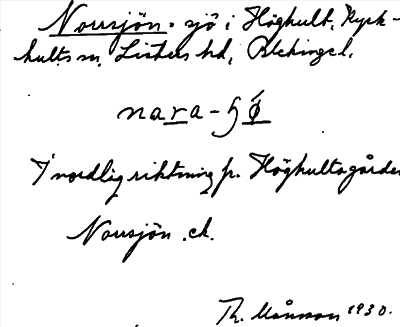 Norrsjön. sjö i Höghult, Kyrk-
hults sn, Listers hd, Blekinge l.
nara-ʃǿ
I nordlig riktning fr. Höghultsgården
Norrsjön. ek.
Th. Månsson 1930.